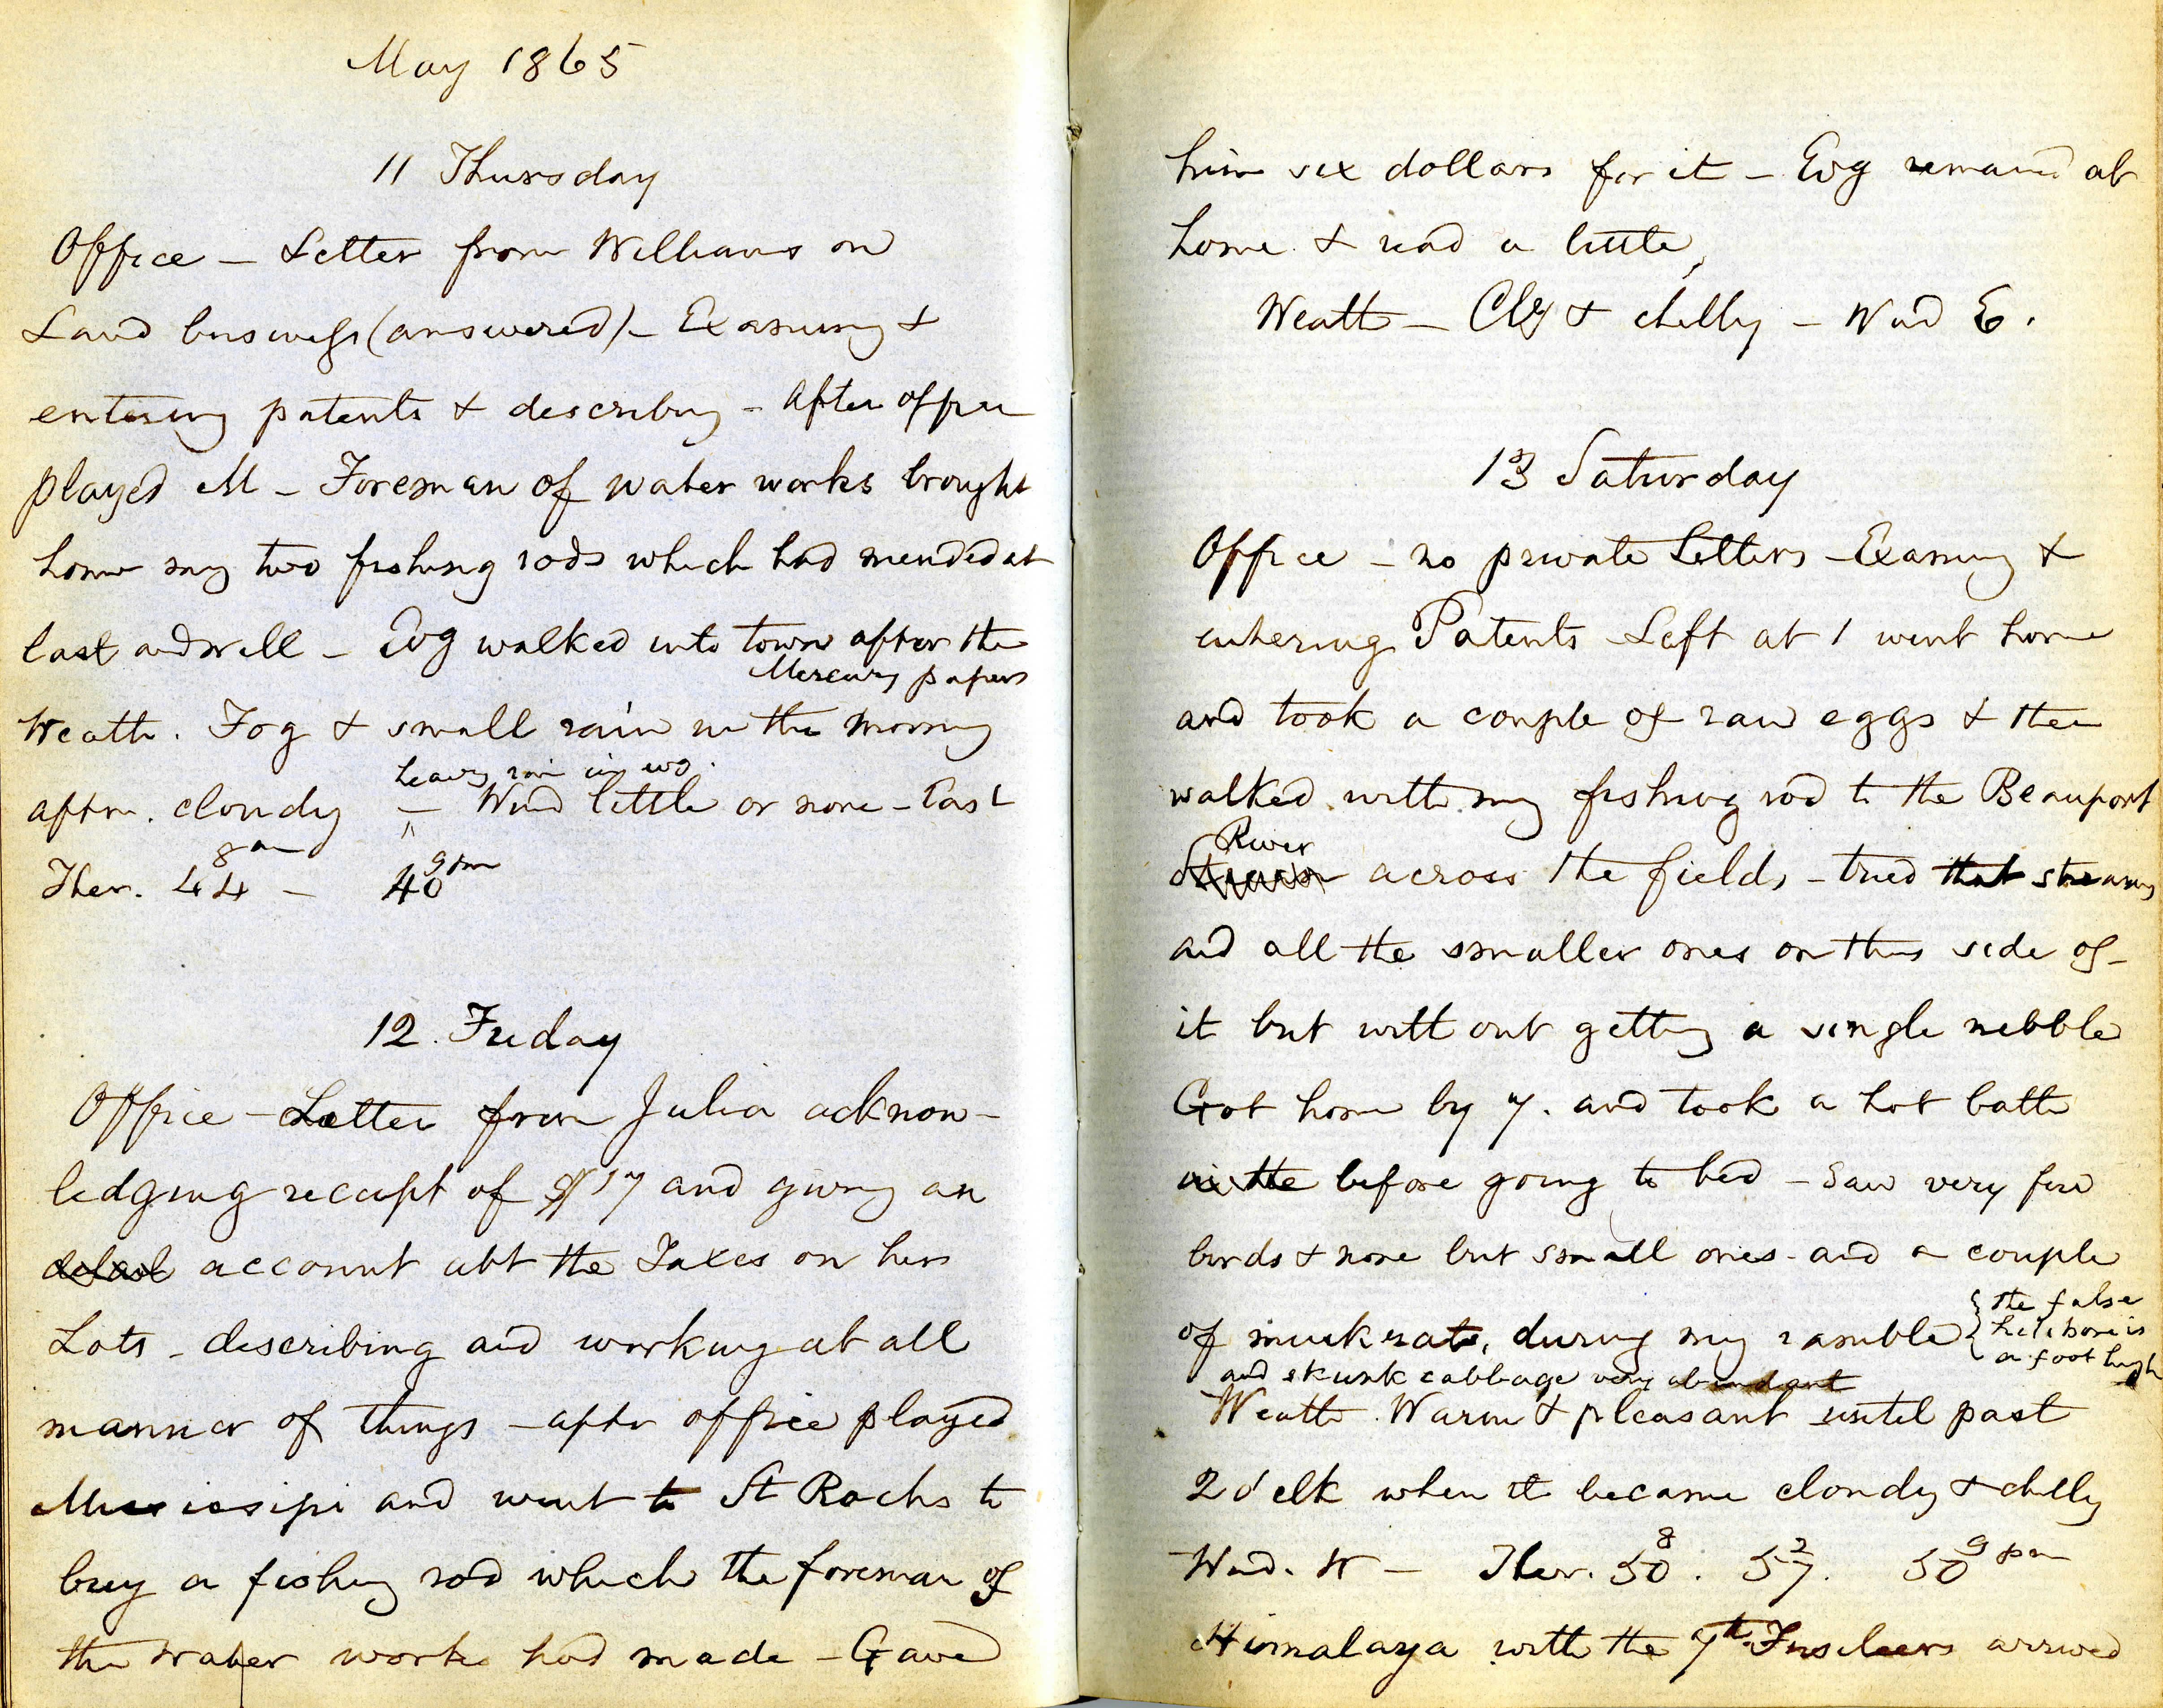 May 1865
11 Thursday
Office – Letter from Williams on
Land business (answered) – Examing &
entering patents & describing – After office
played M – Foreman of water works brought
home my two fishing rods which had mended at
last and well – Evg walked into town after the
Mercury papers
Weath. Fog & small rain in the morning
heavy rain in evg.
aftrn. cloudy – Wind little or none – East
8 am 9 pm
Ther. 44 – 40
12. Friday
Office – Letter from Julia acknow-
ledging receipt of $17 and giving an
account abt the Taxes on her
Lots – describing and working at all
manner of things – aftr office played
Mississipi and went to St Rochs to
buy a fishing rod which the foreman of
the water works had made – Gave
him six dollars for it – Evg remained at
home & read a little
Weath – Cldy & chilly – Wind E.
13 Saturday
Office – no private Letters – Examing &
entering Patents Left at 1 went home
and took a couple of raw eggs & then
walked with my fishing rod to the Beauport
River
Stream across the fields – tried that stream
and all the smaller ones on this side of
it but without getting a single nibble
Got home by 7. and took a hot bath
in the before going to bed – Saw very few
birds & none but small ones – and a couple
of muskrats, during my ramble { the false
helebore is
a foot high
and skunk cabbage very abundant
Weath. Warm & pleasant until past
2 o'clk when it became cloudy & chilly
Wind. W – Ther. 50 8. 57 2. 50 9 pm
Himalaya with the 7th Fusileers arrived